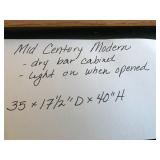 Mid Century Modern
- dry bar cabinet
- light on when opened
35 x 17½" D x 40" H